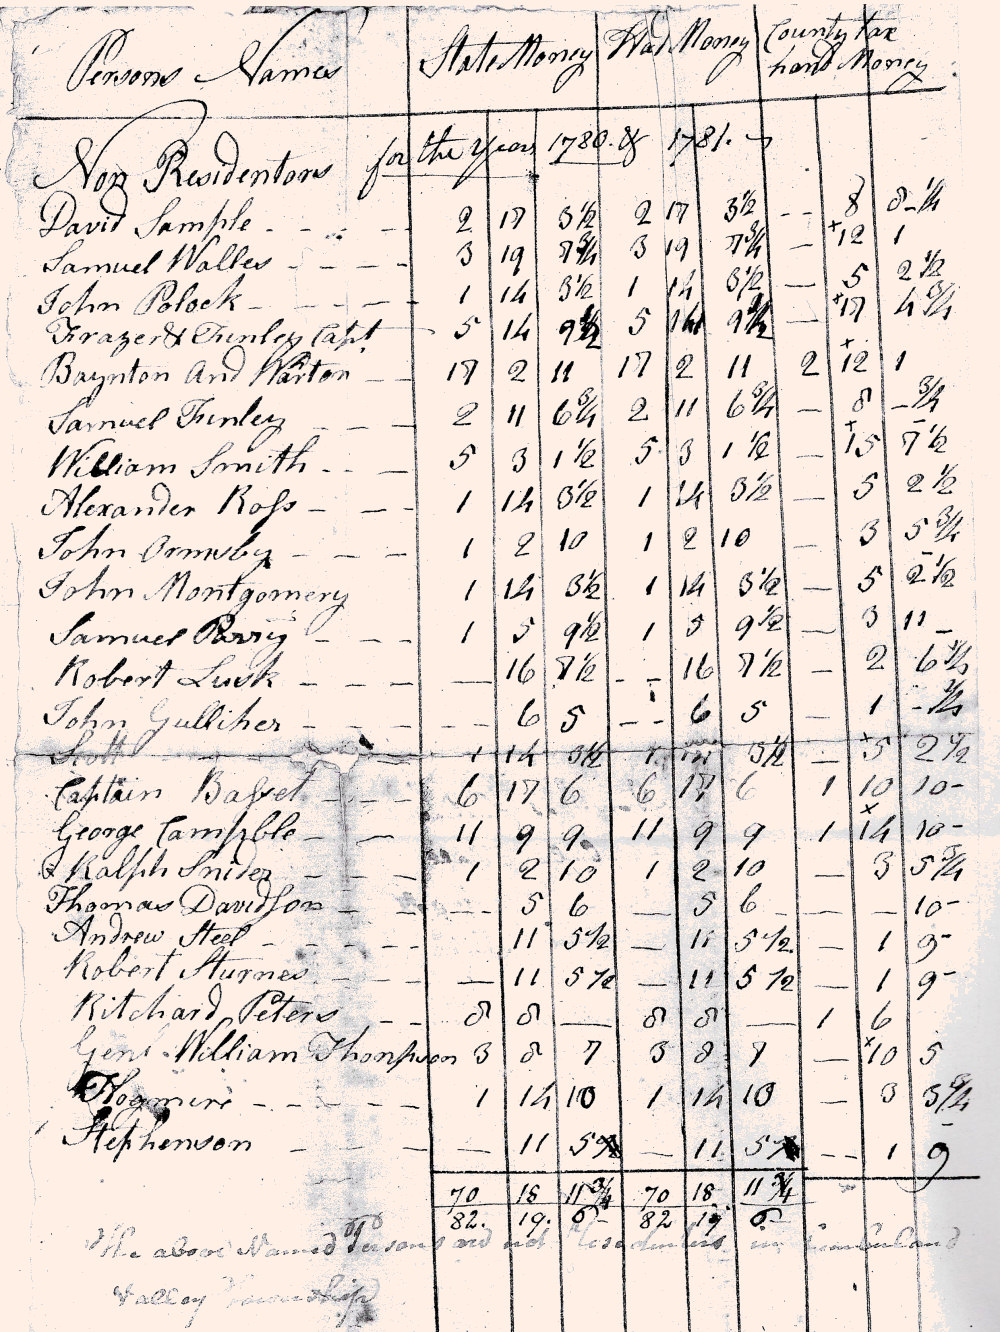 Persons Names State Money Hard Money County tax
hard Money
Non Residentors for the Years 1780. & 1781.
David Sample - - - - 2 17 3½ 2 17 3½ - - 8 8-¼
Samuel Walles - - - - 3 19 7¾ 3 19 7¾ - +12 1
John Polock - - - - 1 14 3½ 1 14 3½ - 5 2½
Frazer & Finley Capt. 5 14 9½ 5 14 9½ - +17 4¾
Baynton and Warton - - 17 2 11 17 2 11 2 +12 1
Samuel Finley - - - 2 11 6¾ 2 11 6¾ - 8 -¾
William Smith - - - 5 3 1½ 5 3 1½ - +15 7½
Alexander Ross - - - 1 14 3½ 1 14 3½ - 5 2½
John Ormsby - - - - 1 2 10 1 2 10 - 3 5¾
John Montgomery 1 14 3½ 1 14 3½ - 5 2½
Samuel Parry - - - 1 5 9½ 1 5 9½ - 3 11 -
Robert Lusk - - - - 16 7½ - - 16 7½ - 2 6¾
John Gulliher - - - - - 6 5 - - 6 5 - 1 -¾
Scott - - - - 1 14 3½ 1 14 3½ - +5 2½
Captain Basset - - - 6 17 6 6 17 6 1 10 10-
George Campble - - 11 9 9 11 9 9 1 +14 10-
Ralph Snider - - - 1 2 10 1 2 10 - 3 5¾
Thomas Davidson - - - - 5 6 - 5 6 - - 10-
Andrew Steel - - - - 11 5½ - 11 5½ - 1 9-
Robert Sturnes - - - - 11 5½ - 11 5½ - 1 9-
Ritchard Peters - - 8 8 - 8 8 - 1 6
Genl. William Thompson 3 8 7 3 8 7 - +10 5
Hogmire - - - - - 1 14 10 1 14 10 - 3 3¾
Stephenson - - - - 11 5 - 11 5 - - 1 9
70 18 11¾ 70 18 11¾
82. 19. 6- 82 19 6-
The above Named Persons are not Residenters in Cumberland
Valley Township